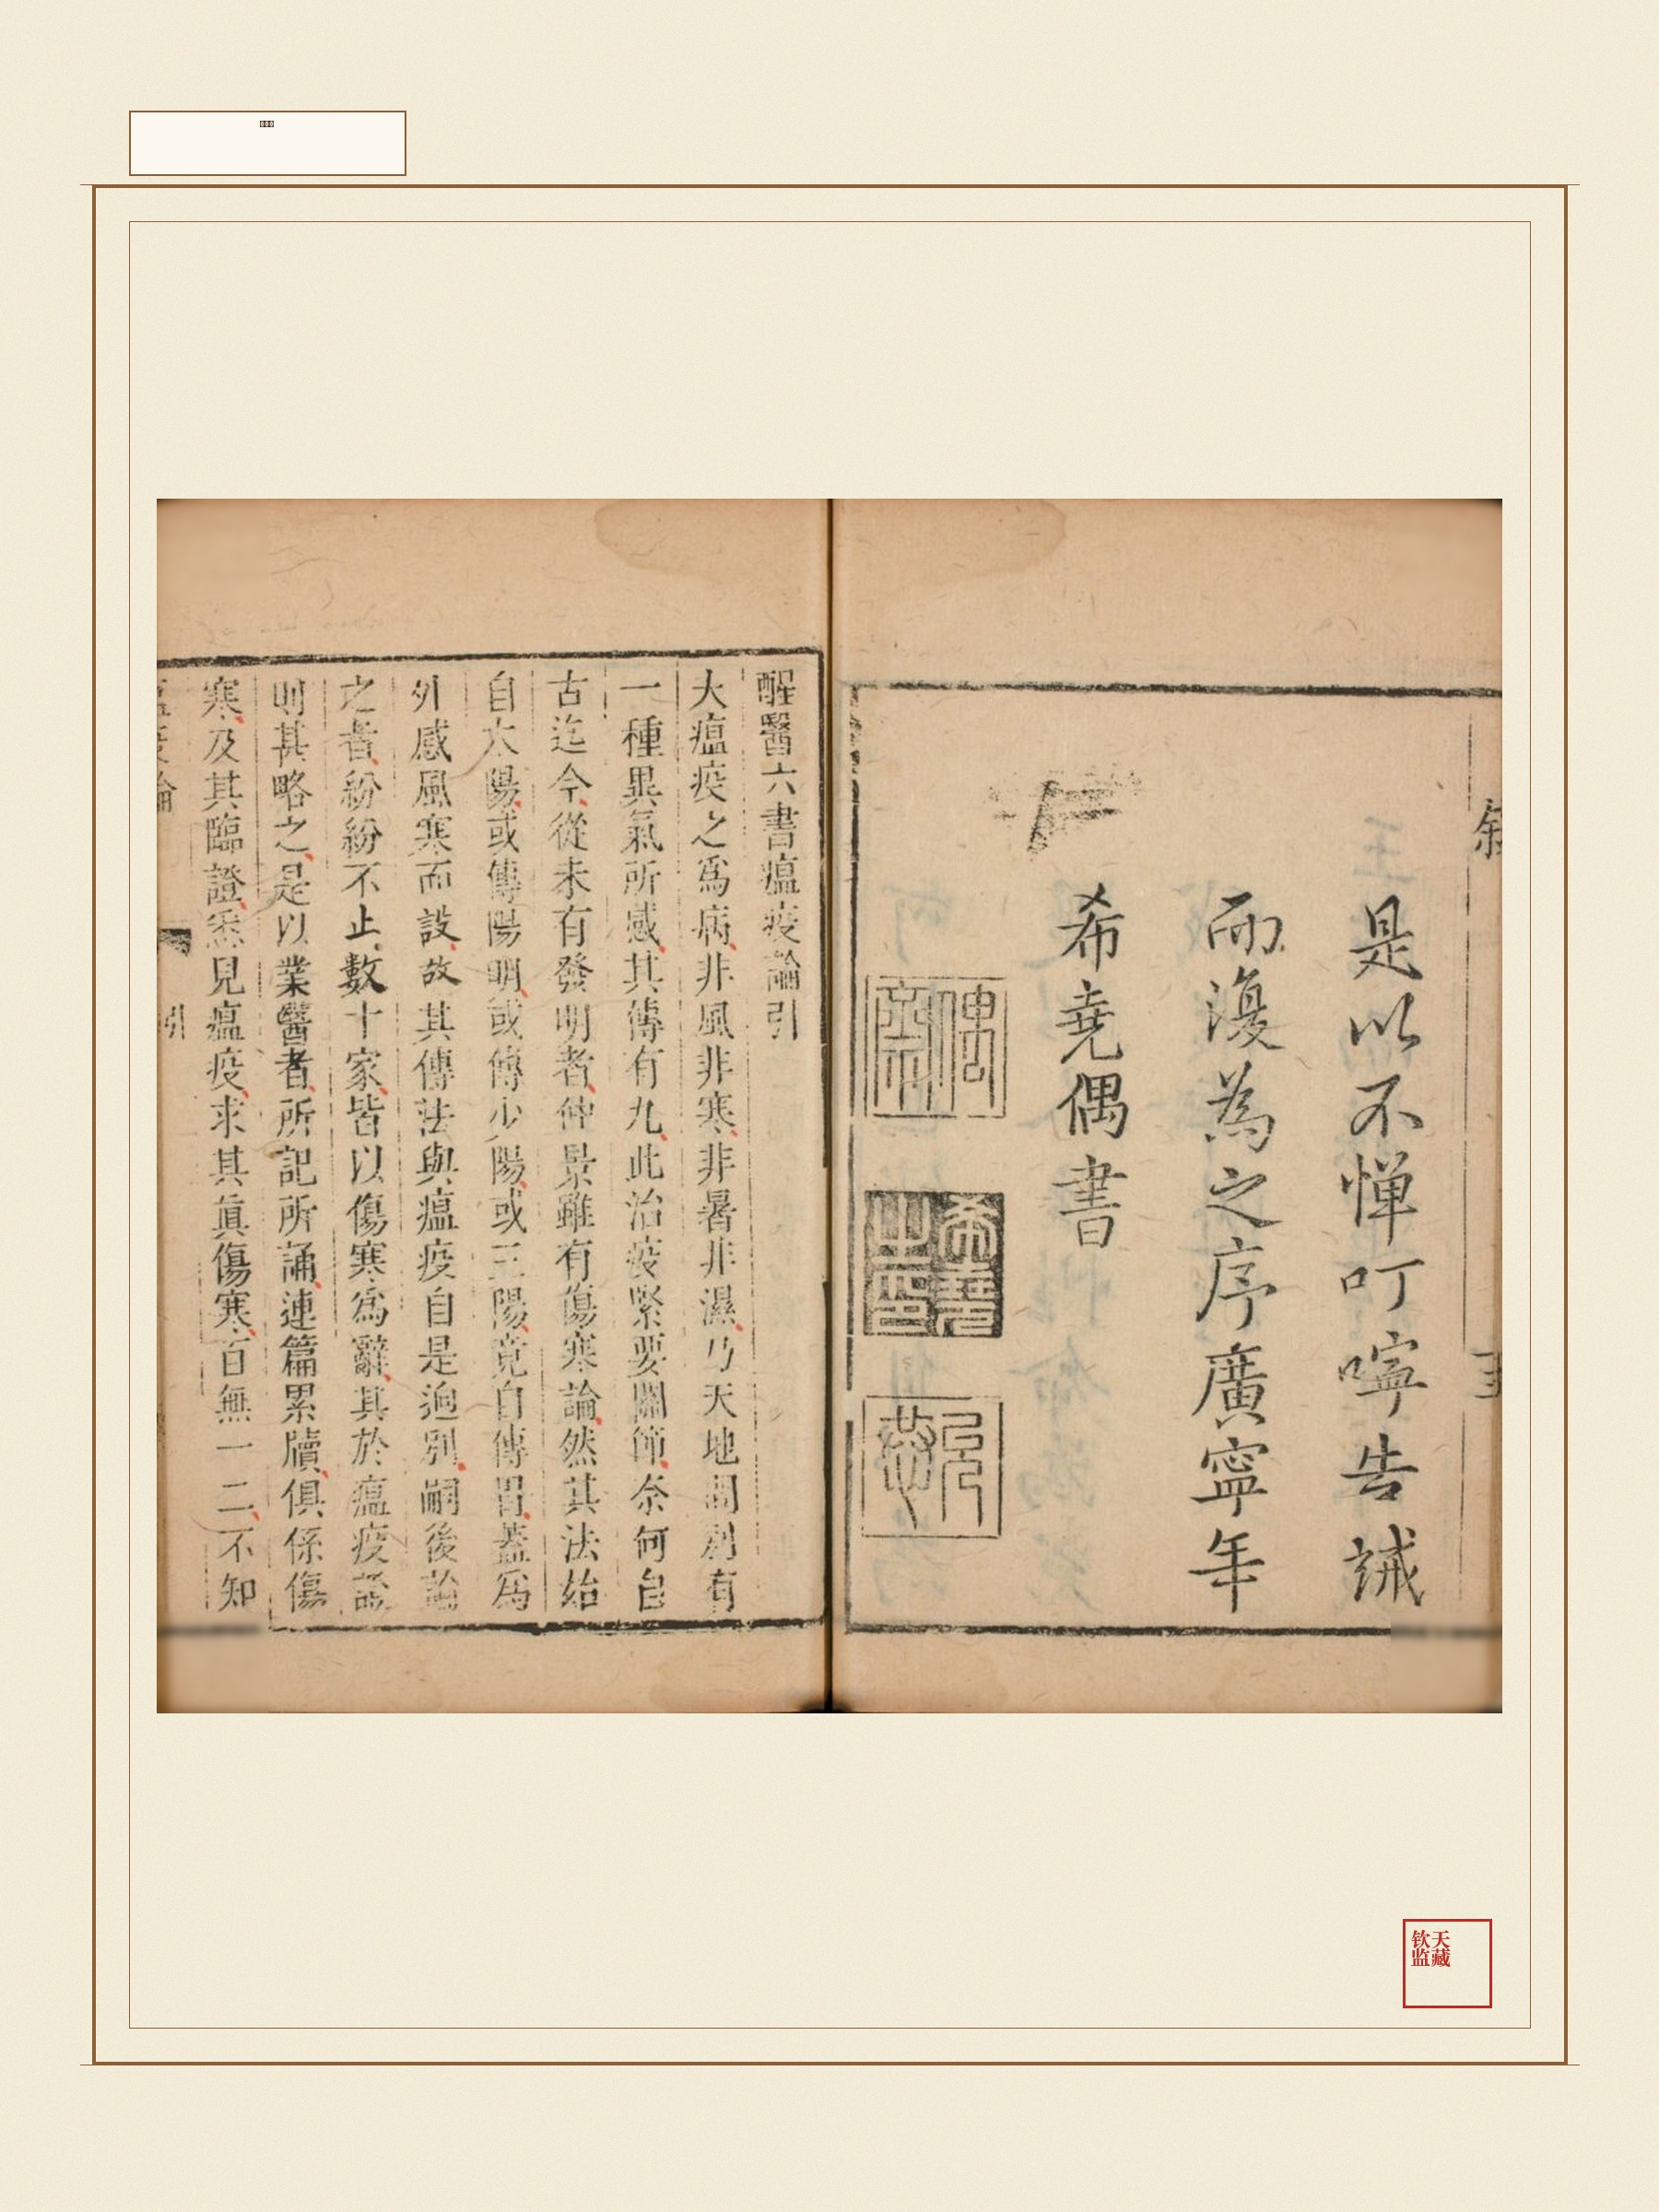 叙
是以不憚叮嚀告誡
而復為之序廣寧年
希堯偶書
年
希堯
之印
醒醫六書瘟疫論引
大瘟疫之為病非風非寒非暑非濕乃天地間別有
一種異氣所感其傳有九此治疫緊要關節奈何自
古迄今從未有發明者仲景雖有傷寒論然其法始
自太陽或傳陽明或傳少陽或三陽竟自傳胃蓋為
外感風寒而設故其傳法與瘟疫自是逈別嗣後論
之者紛紛不止數十家皆以傷寒為辭其於瘟疫證
則甚略之是以業醫者所記所誦連篇累牘俱係傷
寒及其臨證悉見瘟疫求其眞傷寒百無一二不知
引
天藏
钦监